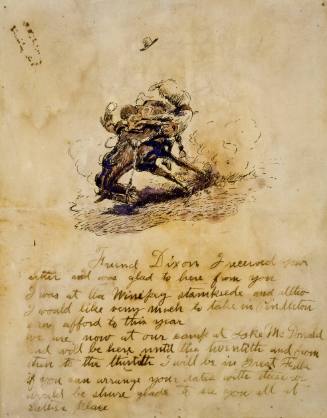 Friend Dixon I received your
letter and was glad to here from you
I was at the Winepeg stampeede and altho
I would like very much to take in Pendleton
cant afford to this year
we are now at our camp at Lake McDonald
and will be here until the twentith and from
then to the thirtith I will be in Great Falls
if you can arrange your dates with these
would be shure glad to see you all at